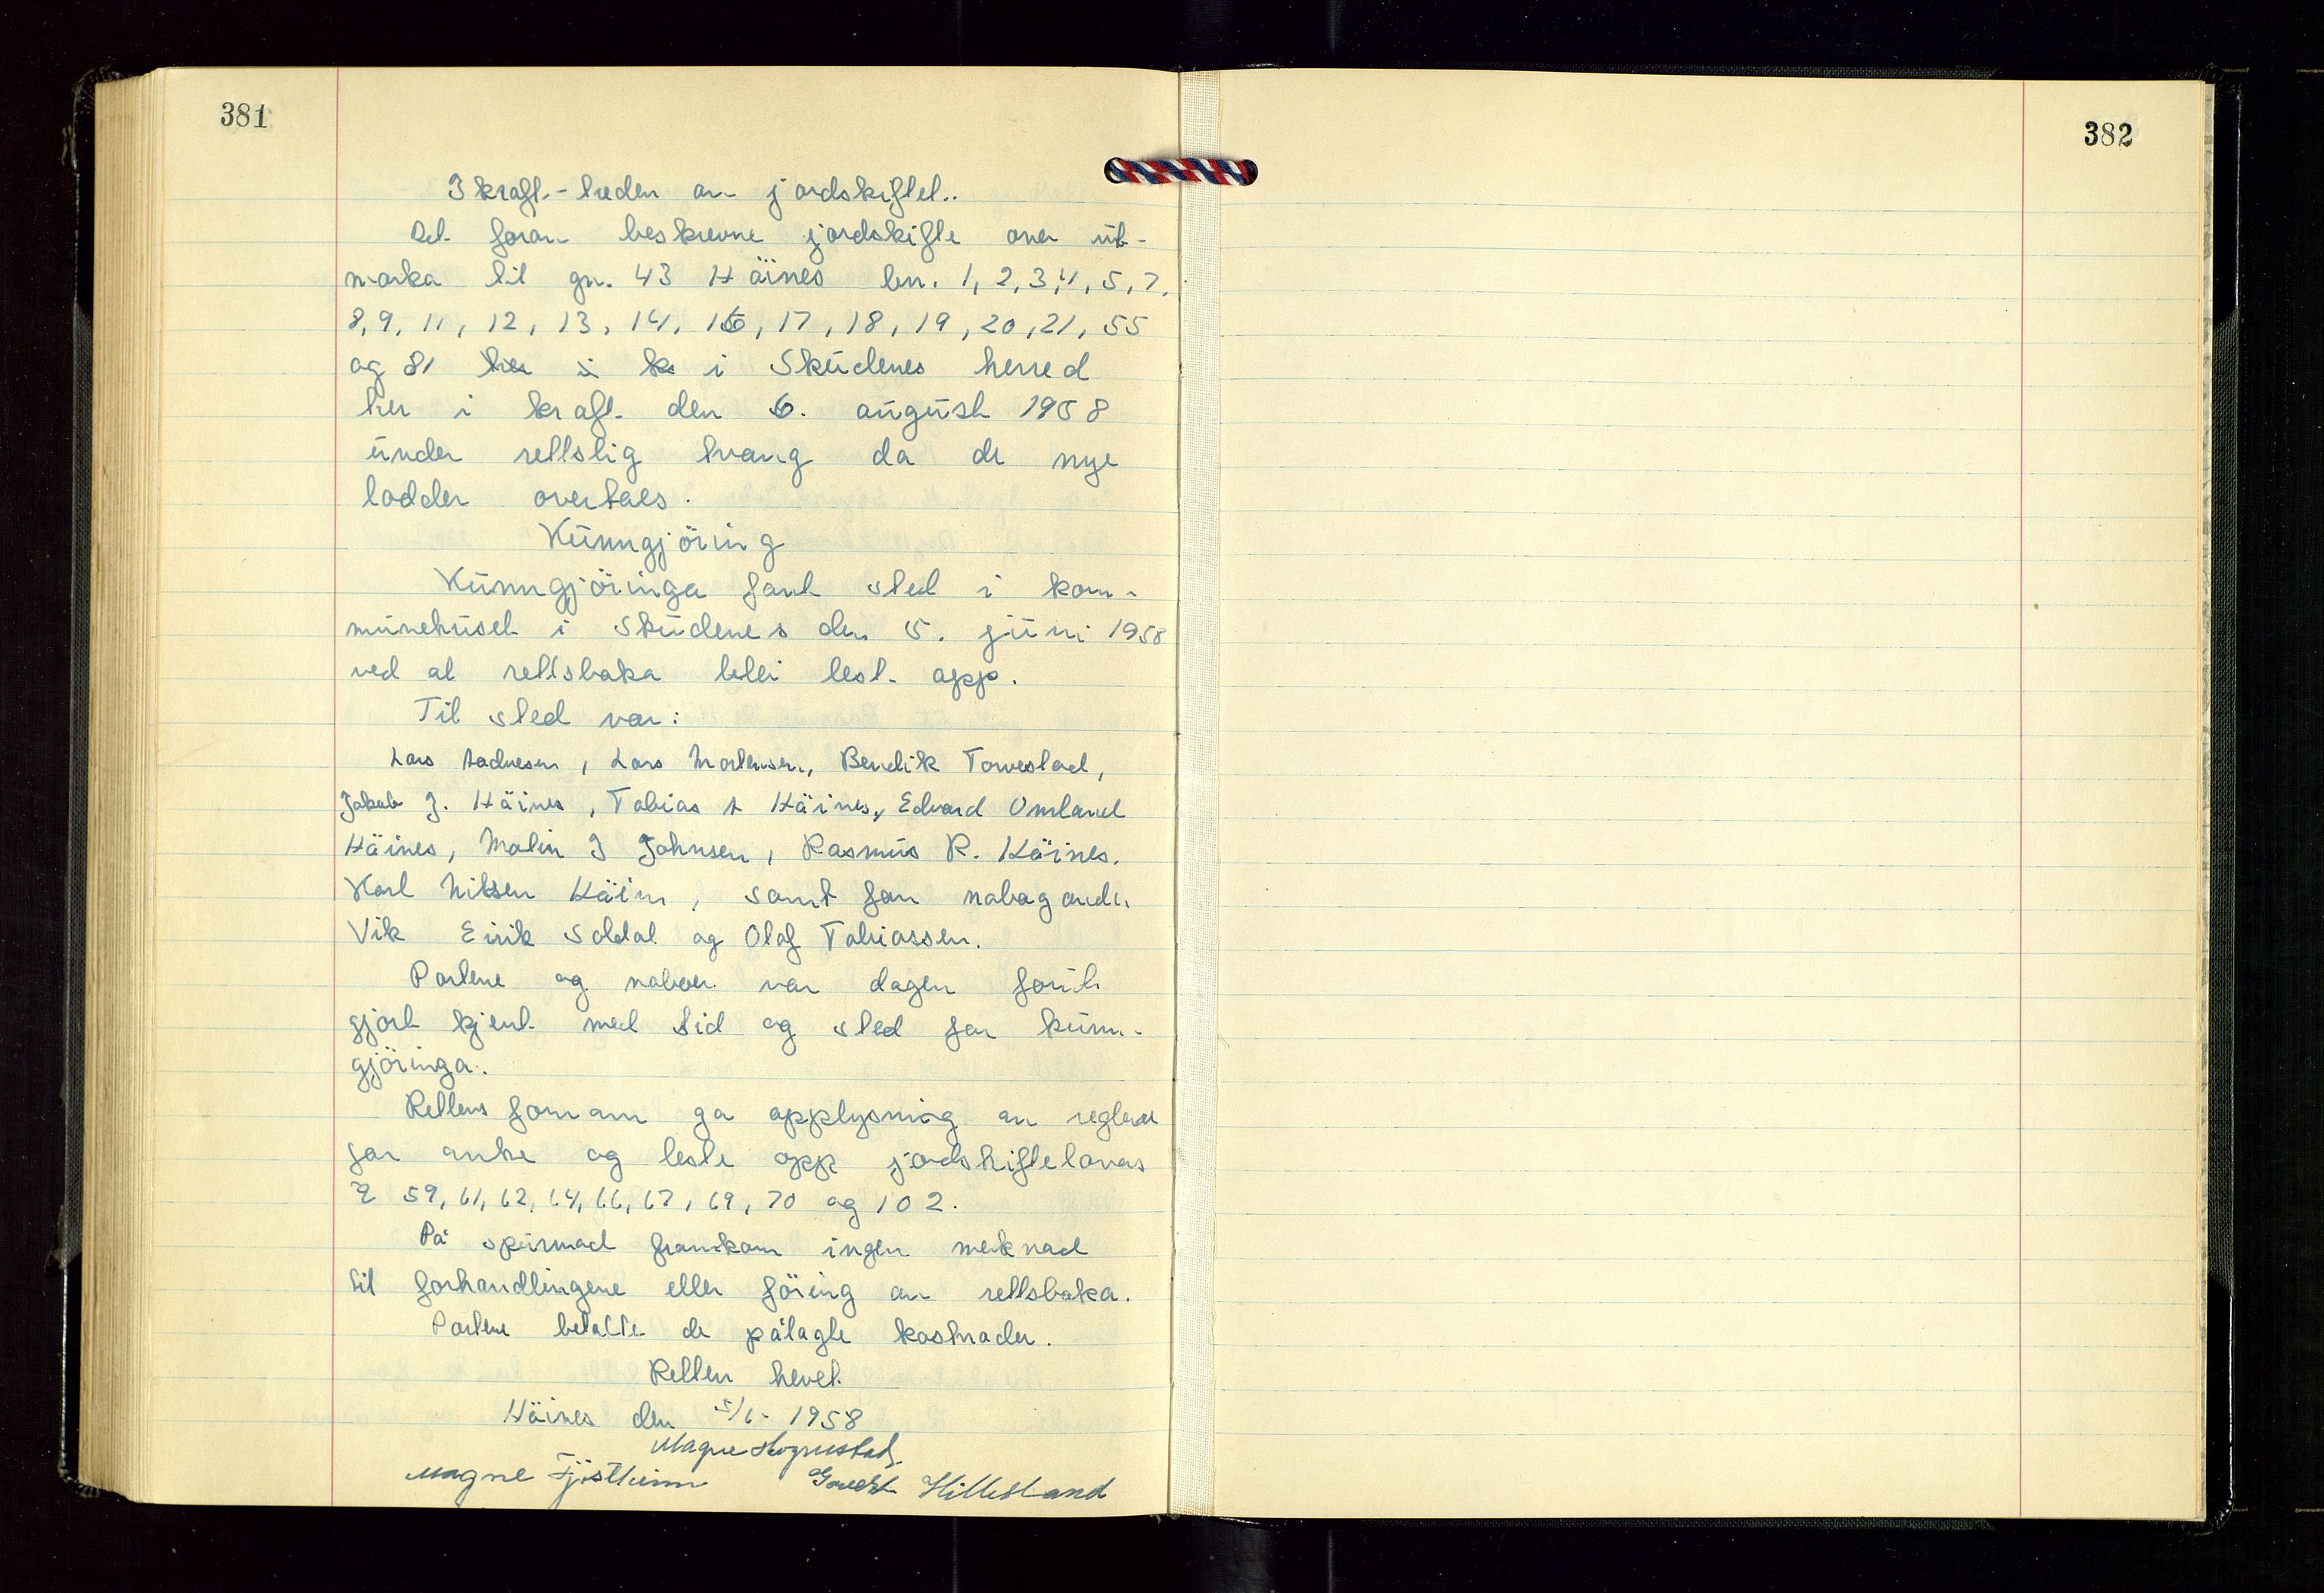 381
I kraft-treden av jordskiftet.
Det foran beskrevne jordskifte over ut-
marka til gn. 43 Håines bn. 1, 2, 3, 4, 5, 7,
8, 9, 11, 12, 13, 14, 16, 17, 18, 19, 20, 21, 55
og 81 i Skudenes herred
trer i kraft den 6. august 1958
under rettslig tvang da de nye
lodder overtaes.
Kunngjöring
Kunngjöringa fant sted i kom-
munehuset i Skudenes den 5. juni 1958
ved at rettsboka blei lest opp.
Til sted var:
Lars Aadnesen, Lars Mortensen, Bendik Torvestad,
Jakob J. Håines, Tobias A Håines, Edvard Omland
Håines, Malin J Johnsen, Rasmus R. Håines.
Karl Nilsen Håines, samt for nabogarden
Vik Eirik Soldal og Olaf Tobiassen.
Partene og naboer var dagen forut
gjort kjent med tid og sted for kunn-
gjöringa.
Rettens formann ga opplysning om reglene
for anke og leste opp jordskiftelovas
§ 59, 61, 62, 64, 66, 67, 69, 70 og 102.
På spörsmål framkom ingen merknad
til forhandlingene eller föring av rettsboka.
Partene betalte de pålagte kostnader.
Retten hevet
Håines den 5/6- 1958
Magne Hognestad
Magne Fjöstheim Hillesland
382